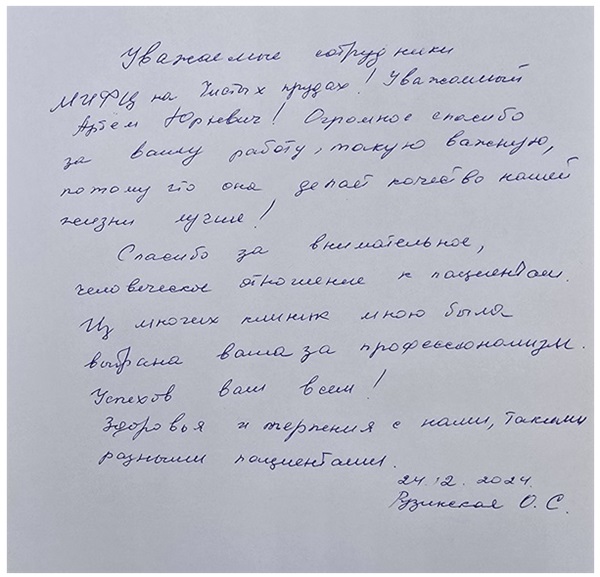 Уважаемые сотрудники
МИФЦ на Чистых прудах! Уважаемый
Артём Юрьевич! Огромное спасибо
за вашу работу, такую важную,
потому что она делает качество нашей
жизни лучше!
Спасибо за внимательное,
человеческое отношение к пациентам.
Из многих клиник мною была
выбрана ваша за профессионализм.
Успехов вам всем!
Здоровья и терпения с нами, такими
разными пациентами.
24.12.2024.
Рузинская О.С.